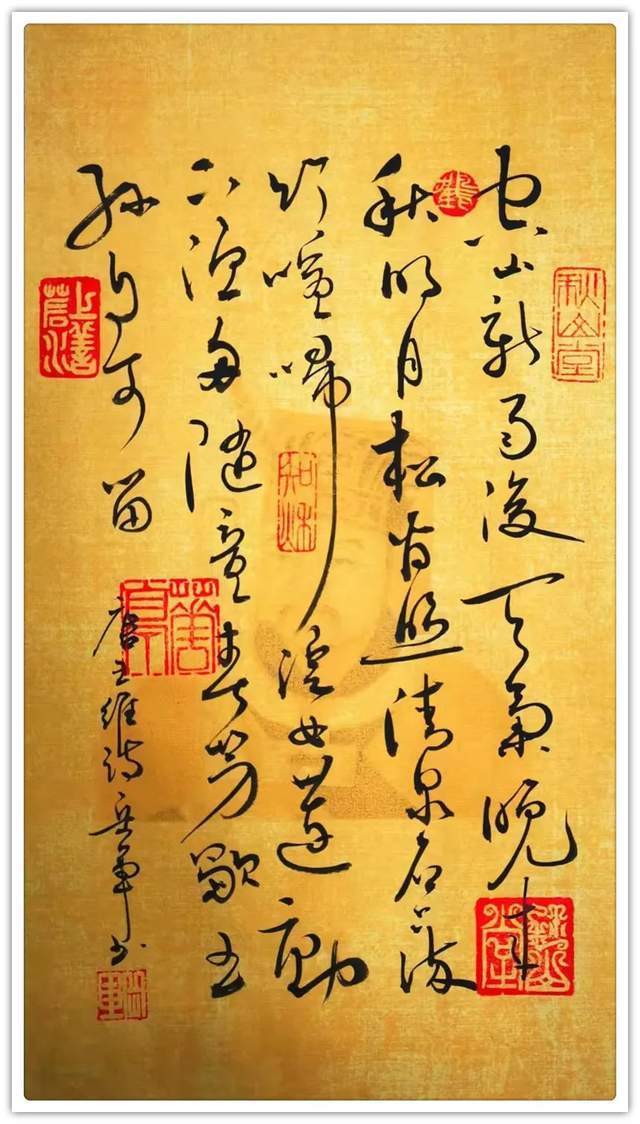 空山新雨後天氣晚來
秋明月松間照清泉石上流
竹喧歸浣女蓮動
下漁舟隨意春芳歇王
孫自可留
唐王維詩
秋山堂
上善若水